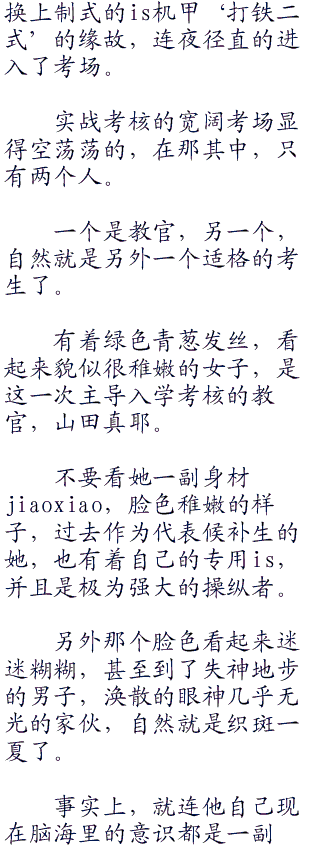 换上制式的is机甲‘打铁二
式’的缘故，连夜径直的进
入了考场。
实战考核的宽阔考场显
得空荡荡的，在那其中，只
有两个人。
一个是教官，另一个，
自然就是另外一个适格的考
生了。
有着绿色青葱发丝，看
起来貌似很稚嫩的女子，是
这一次主导入学考核的教
官，山田真耶。
不要看她一副身材
jiaoxiao，脸色稚嫩的样
子，过去作为代表候补生的
她，也有着自己的专用is，
并且是极为强大的操纵者。
另外那个脸色看起来迷
迷糊糊，甚至到了失神地步
的男子，涣散的眼神几乎无
光的家伙，自然就是织斑一
夏了。
事实上，就连他自己现
在脑海里的意识都是一副